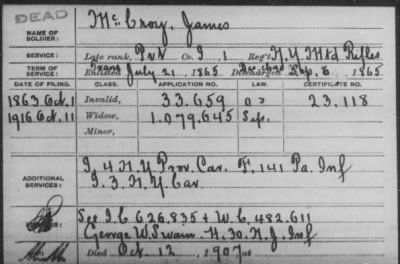 DEAD
NAME OF SOLDIER: McCroy, James
SERVICE: Late rank, Pvt Co. I, 1 Reg't N.Y. Mtd Rifles
TERM OF SERVICE: Enlisted July 21, 1865 Discharged Sep. 6, 1865
DATE OF FILING. CLASS. APPLICATION NO. LAW. CERTIFICATE NO.
1863 Oct. 1 Invalid, 33.659 23.118
1916 Oct. 11 Widow, 1.079.645 Sep.
Minor,
ADDITIONAL SERVICES: I. 4 N.Y. Prov. Cav. F. 141 Pa. Inf
I. 3. N.Y. Cav.
See I.C. 626,835 + W.C. 482.611
George W. Swain H. 30. N.J. Inf
Died Oct. 12, 1907 at